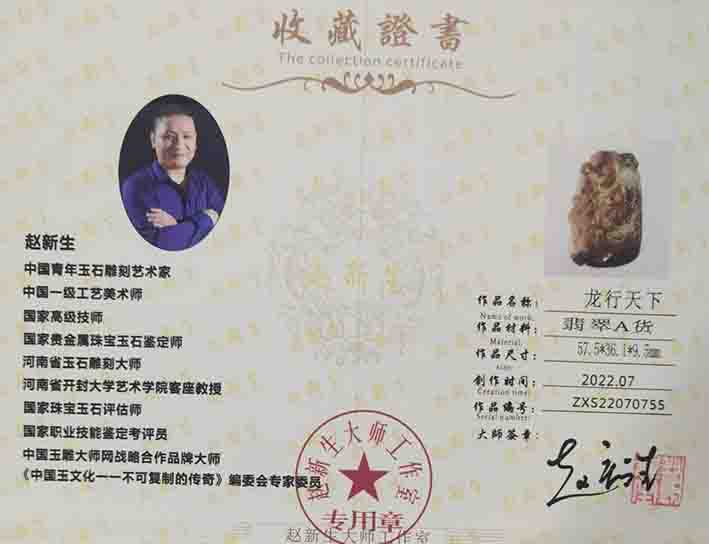 收藏證書
The collection certificate
赵新生
中国青年玉石雕刻艺术家
中国一级工艺美术师
国家高级技师
国家贵金属珠宝玉石鉴定师
河南省玉石雕刻大师
河南省开封大学艺术学院客座教授
国家珠宝玉石评估师
国家职业技能鉴定考评员
中国玉雕大师网战略合作品牌大师
《中国玉文化一一不可复制的传奇》编委会专家委员
赵新生
作品名称: 龙行天下
Name of work:
作品材料: 翡翠A货
Material:
作品尺寸: 57.5*36.1*9.5mm
size:
创作时间: 2022.07
Creation time:
作品编号: ZXS22070755
Serial number:
大师签章:
赵新生
赵新生大师工作室
专用章
赵新生大师工作室